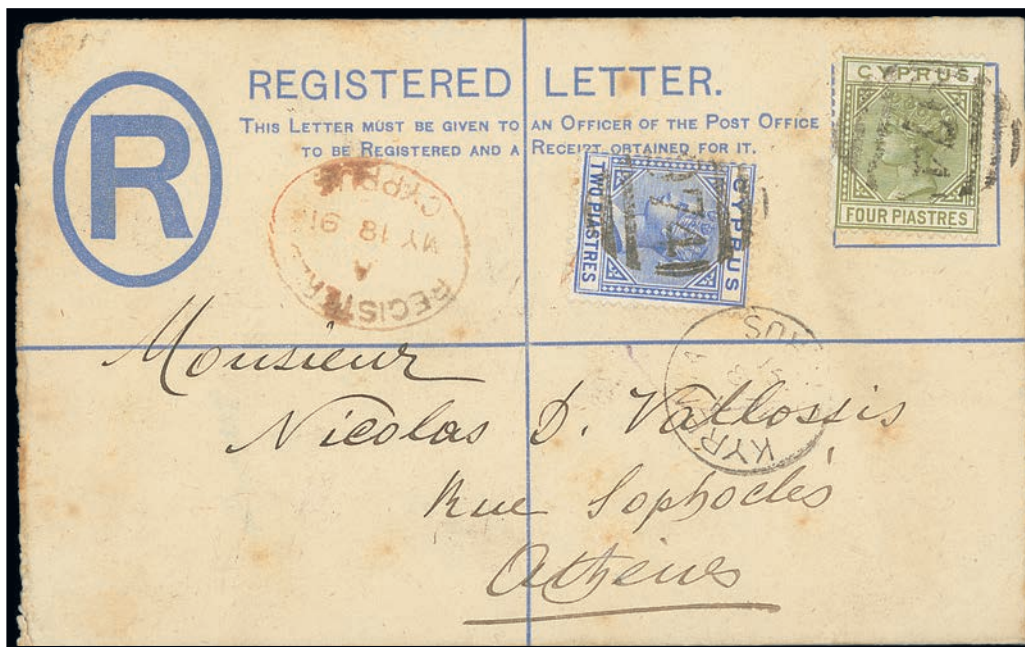 REGISTERED LETTER.
THIS LETTER MUST BE GIVEN TO AN OFFICER OF THE POST OFFICE
TO BE REGISTERED AND A RECEIPT OBTAINED FOR IT.
R
CYPRUS
FOUR PIASTRES
CYPRUS
TWO PIASTRES
CYPRUS
MY 18 91
A
Monsieur
Nicolas D. Vallossis
Rue Sophoclès
Athènes